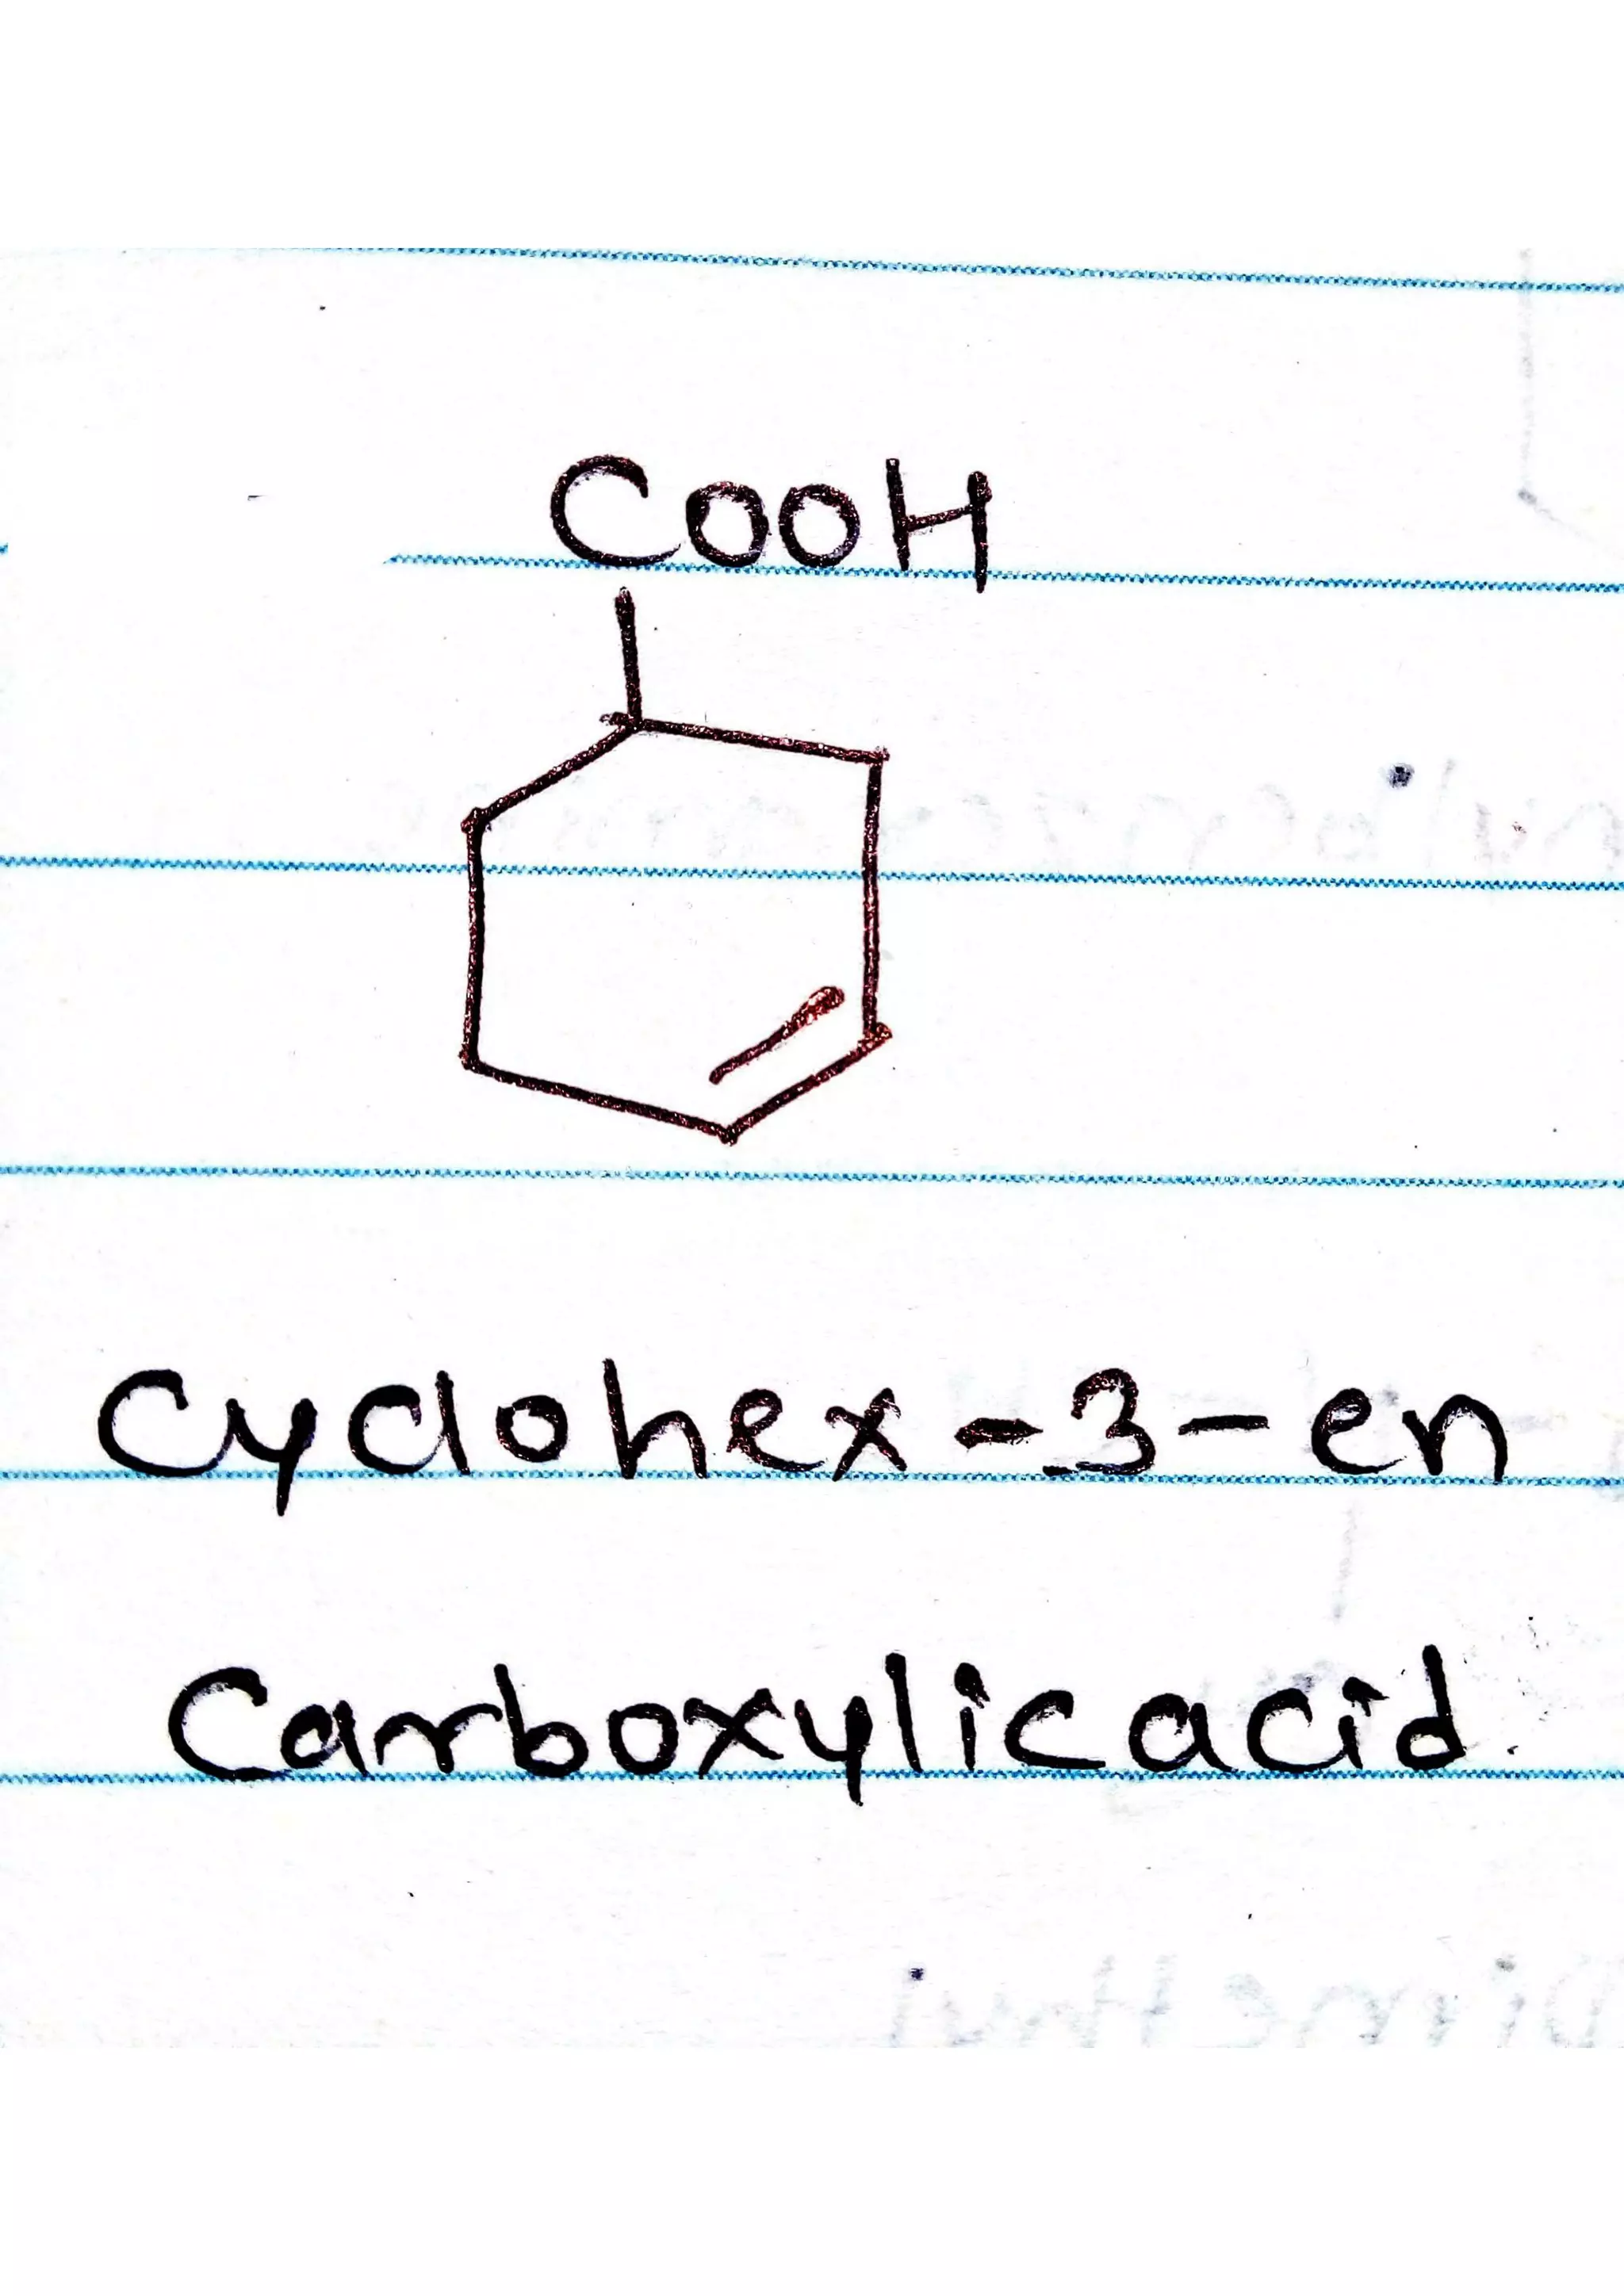 COOH
Cyclohex-3-en
Carboxylicacid.